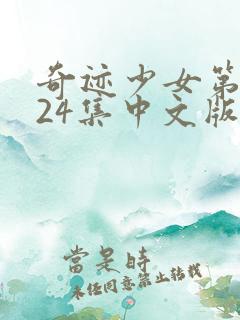 奇迹少女第
24集中文版
當是時
未经同意禁止转载